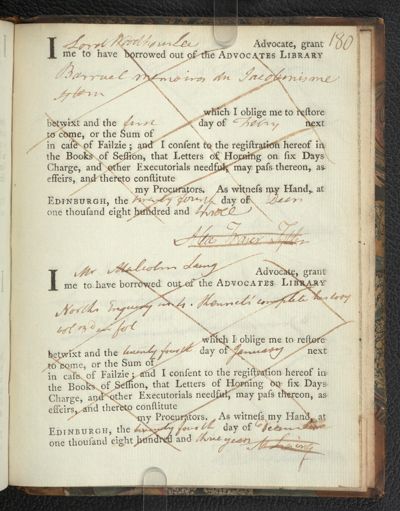 180
I Lord Woodhouselee Advocate, grant
me to have borrowed out of the ADVOCATES LIBRARY
Barruel memoires du Jacobinisme
which I oblige me to reſtore
betwixt and the day of next
to come, or the Sum of
in caſe of Failzie; and I conſent to the regiſtration hereof in
the Books of Seſſion, that Letters of Horning on ſix Days
Charge, and other Executorials needful, may paſs thereon, as
effeirs, and thereto conſtitute
my Procurators. As witneſs my Hand, at
EDINBURGH, the twenty fourth day of Decr
one thouſand eight hundred and three
Alex Fraser Tytler
I Mr Malcolm Laing Advocate, grant
me to have borrowed out of the ADVOCATES LIBRARY
North's Enquiry into Kennet's complete history
vol 3d in fol
which I oblige me to reſtore
betwixt and the twenty fourth day of January next
to come, or the Sum of
in caſe of Failzie; and I conſent to the regiſtration hereof in
the Books of Seſſion, that Letters of Horning on ſix Days
Charge, and other Executorials needful, may paſs thereon, as
effeirs, and thereto conſtitute
my Procurators. As witneſs my Hand, at
EDINBURGH, the twenty fourth day of December
one thouſand eight hundred and three years M Laing